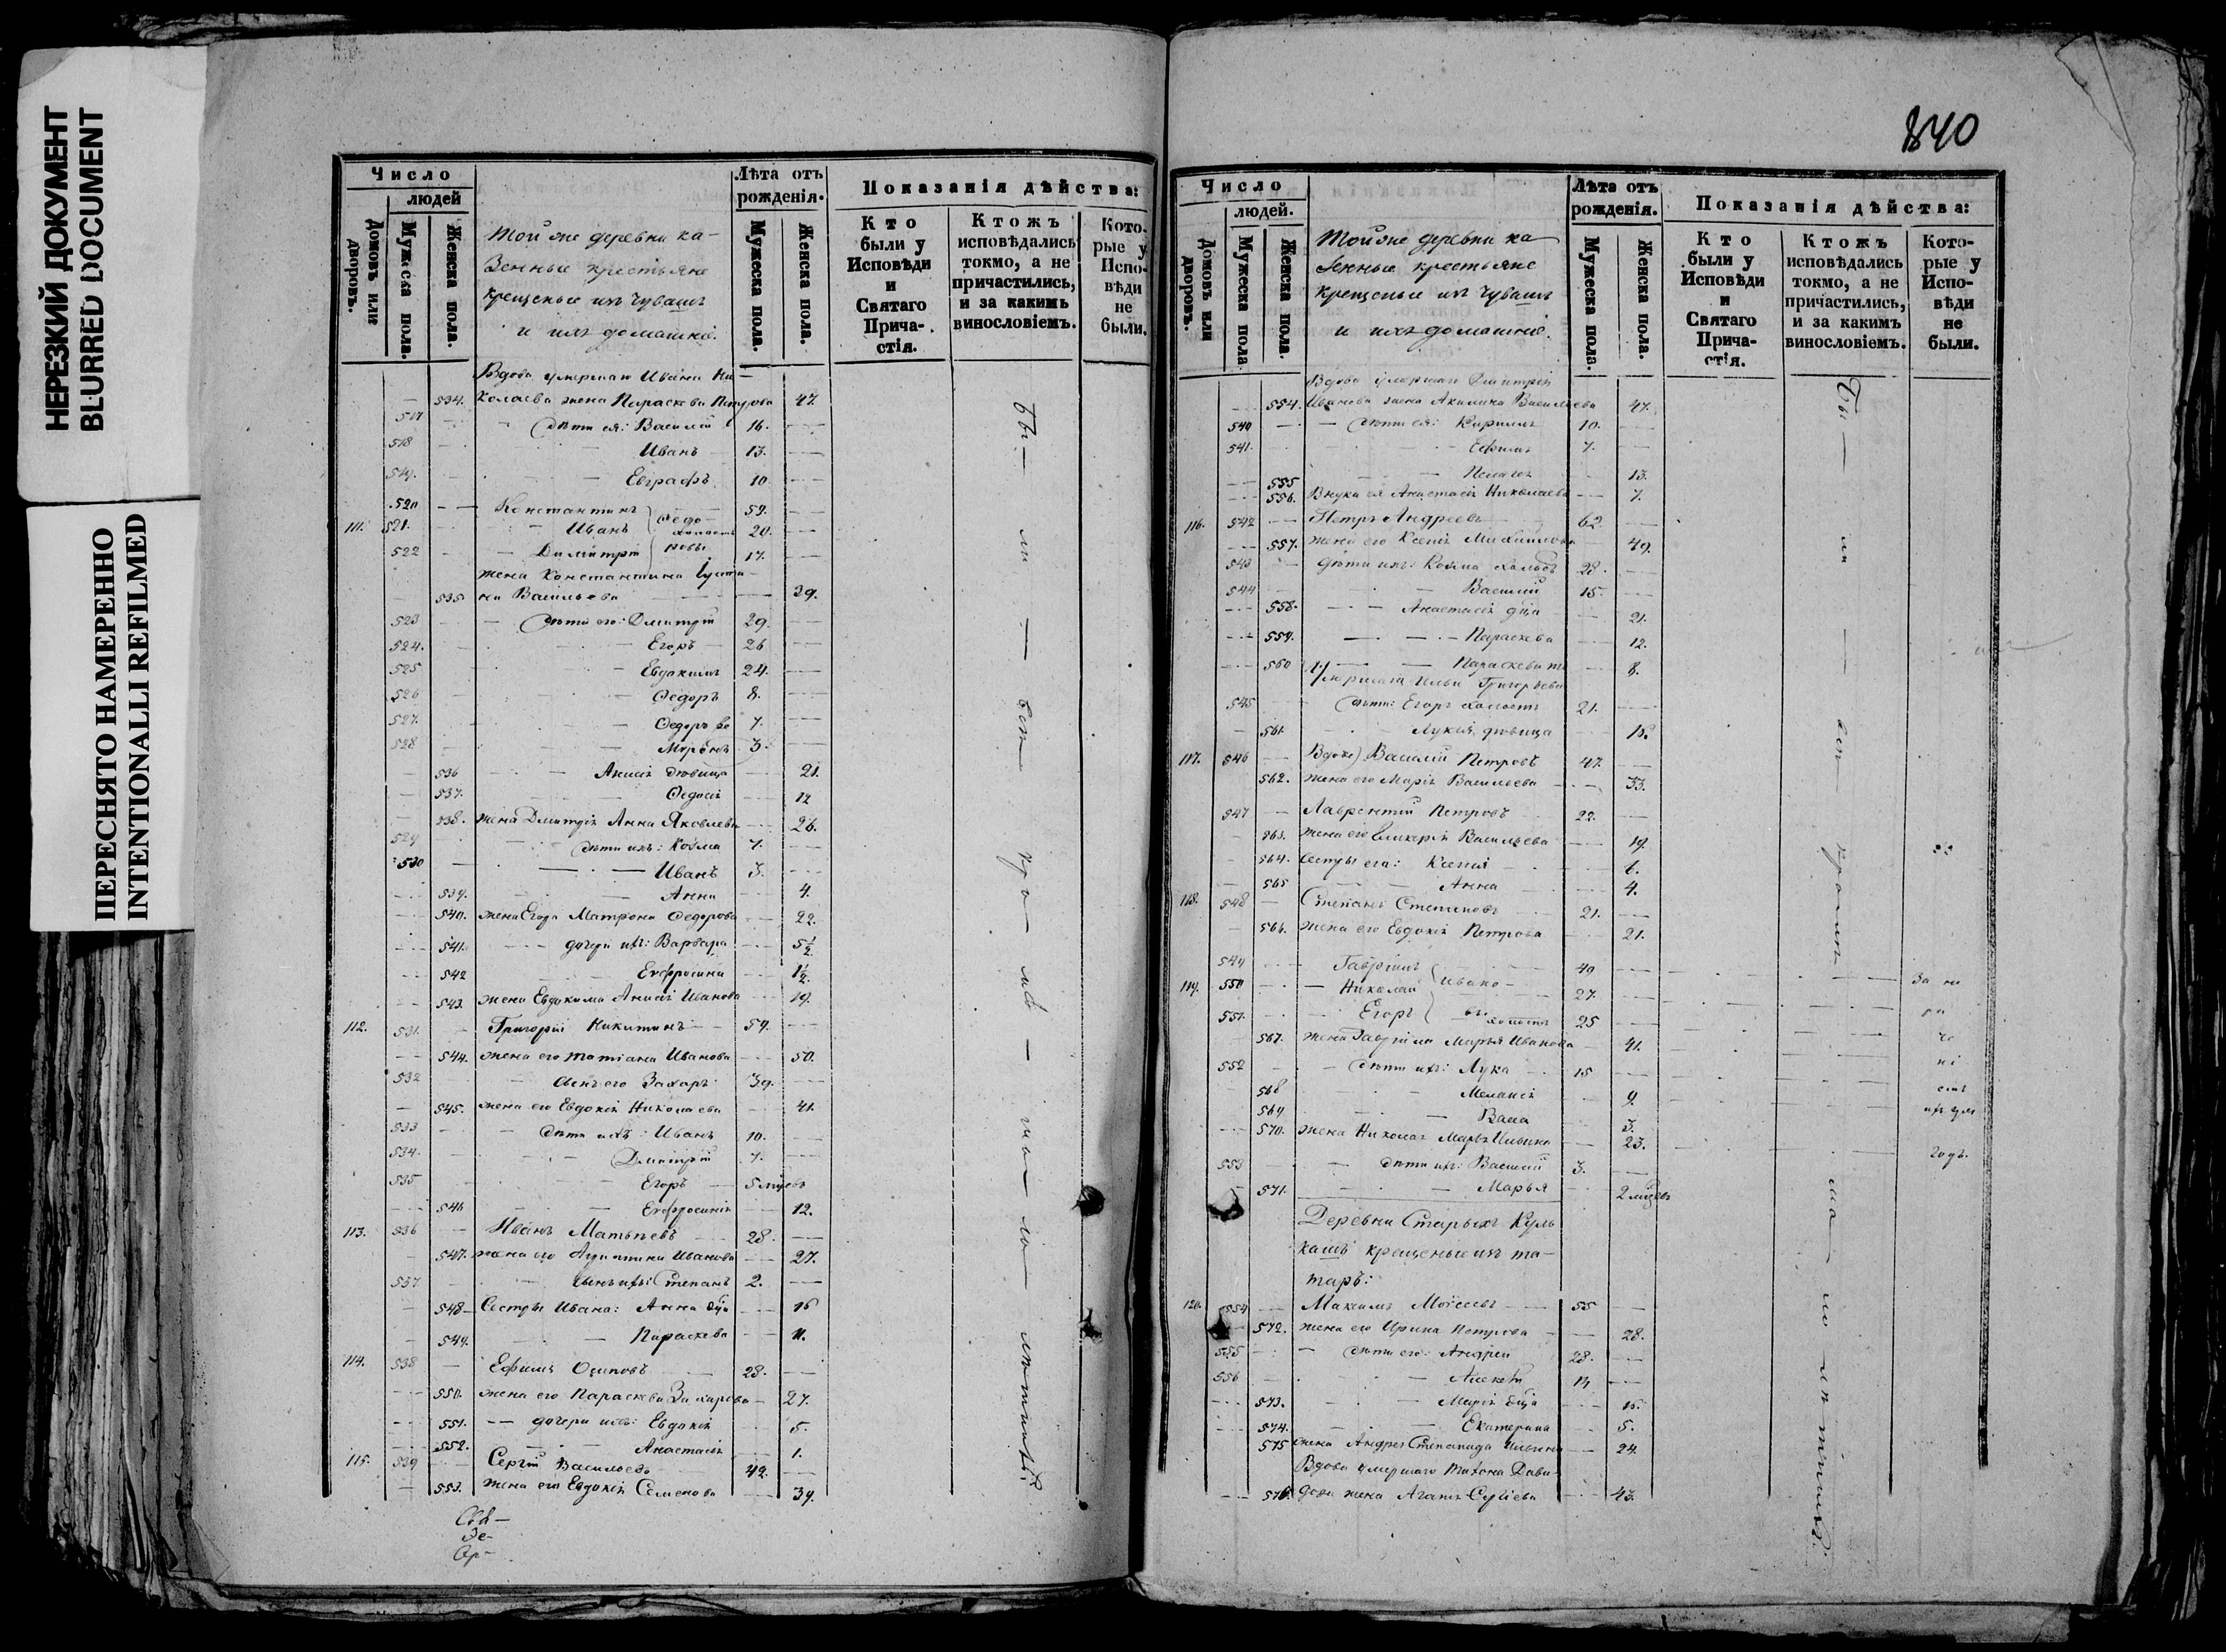 НЕРЕЗКИЙ ДОКУМЕНТ
BLURRED DOCUMENT
ПЕРЕСНЯТО НАМЕРЕННО
INTENTIONALLI REFILMED
Число
людей
Домовъ или дворовъ.
Мужеска пола.
Женска пола.
Тойже деревни ка-
зенные крестьяне
крещеные изъ Чувашъ
и ихъ домашніе.
Лѣта отъ рожденія.
Мужеска пола.
Женска пола.
Показанія дѣйства:
Кто были у Исповѣди и Святаго Прича-стія.
Ктожъ исповѣдались токмо, а не причастились, и за какимъ винословіемъ.
Кото-рые у Испо-вѣди не были.
Вдова умершаго Ивана Ни-
534. колаева жена Параскева Петрова 47.
517 дѣти ея: Василій 16.
518 Иванъ 13.
519. Евграфъ 10.
520 Константинъ Федо- 59.
111. 521. Иванъ холостъ 20.
522 Димитрій ровы 17.
жена Константина Іусти-
535 на Васильева 39.
523 дѣти его: Дмитрій 29.
524. Егоръ 26
525 Евдокимъ 24.
526 Ѳедоръ 8.
527. Ѳедоръ 7.
528 Миронъ 3.
536 Анисія дѣвица 21.
537. Ѳедосія 12
538. жена Дмитрія Анна Яковлева 26.
529 дѣти ихъ: Козма 7.
530 Иванъ 3.
539. Анна 4.
540. жена Егора Матрона Ѳедорова 22.
541. дочери ихъ: Варвара 5½
542 Евфросинія 1½
543. жена Евдокима Анисія Иванова 19.
112. 531. Григорій Никитинъ 59.
544. жена его Татіана Иванова 50.
532 сынъ его Захаръ 39.
545. жена его Евдокія Николаева 41.
533 дѣти ихъ: Иванъ 10.
534. Дмитрій 7.
535 Егоръ 5 мцовъ
546 Евфросинія 12.
113. 536 Иванъ Матвѣевъ 28.
547. жена его Агриппина Иванова 27.
537 сынъ ихъ: Степанъ 2.
548 Сестры Ивана: Анна дца 16
549. Параскева 11.
114. 538 Ефимъ Осиповъ 28.
550. жена его Параскева Захарова 27.
551. дочери ихъ: Евдокія 5.
552. Анастасія 1.
115. 539 Сергій Васильевъ 42.
553. жена его Евдокія Семенова 39.
Бы — ли — всѣ
840
Число
людей.
Домовъ или дворовъ.
Мужеска пола
Женска пола.
Тойже деревни ка-
зенные крестьяне
крещеные изъ Чувашъ
и ихъ домашніе.
Лѣта отъ рожденія.
Мужеска пола.
Женска пола.
Показанія дѣйства:
Кто были у Исповѣди и Святаго Прича-стія.
Ктожъ исповѣдались токмо, а не причастились, и за какимъ винословіемъ.
Кото-рые у Испо-вѣди не были.
Вдова умершаго Дмитрія
554. Иванова жена Акилина Васильева 47.
540 дѣти ея: Кириллъ 10.
541. Ефимъ 7.
555 Пелагея 13.
556. Внука ея Анастасія Николаева 7.
116. 542 Петръ Андреевъ 62.
557. жена его Ксенія Михайлова 49.
543 дѣти ихъ: Козма холостъ 28.
544 Василій 15.
558. Анастасія дца 21.
559. Параскева 12.
560 Параскева 8.
умершаго Ильи Григорьева
545 дѣти: Егоръ холостъ 21.
561. Лукія дѣвица 18.
117. 546 Вдовъ) Василій Петровъ 47.
562. жена его Марія Васильева 33.
547 Лаврентій Петровъ 22.
563. жена его Гликерія Васильева 19.
564. Сестры его: Ксенія 6.
565 Анна 4.
118. 548 Степанъ Степановъ 21.
566. жена его Евдокія Петрова 21.
549 Гавріилъ Ивано- 40
119. 550 Николай 27.
551. Егоръ вы холостъ 25
567. жена Гавріила Марья Иванова 41.
552 дѣти ихъ: Лука 15
568 Меланія 9.
569 Васса 3.
570. жена Николая Марья Ильина 23.
553 дѣти ихъ: Василій 3.
571. Марья 2 мцовъ
Деревни Старыхъ Куль
кашъ крещеные изъ та-
таръ:
120. 554 Максимъ Моѵсеевъ 55
572. жена его Ирина Петрова 28.
555 дѣти его: Андрей 28.
556 Алексѣй
573. Марія дца 15.
574. Екатерина 5.
575 жена Андрея Степанида Ильина 24.
Вдова умершаго Тихона Дави-
576. дова жена Агапія Сергіева 43.
Бы — ли — всѣ — кромѣ